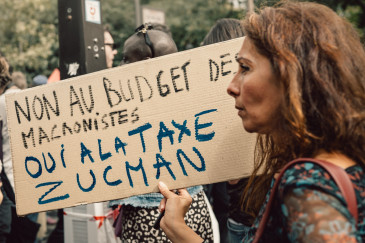 NON AU BUDGET DES
MACRONISTES
OUI À LA TAXE
ZUCMAN